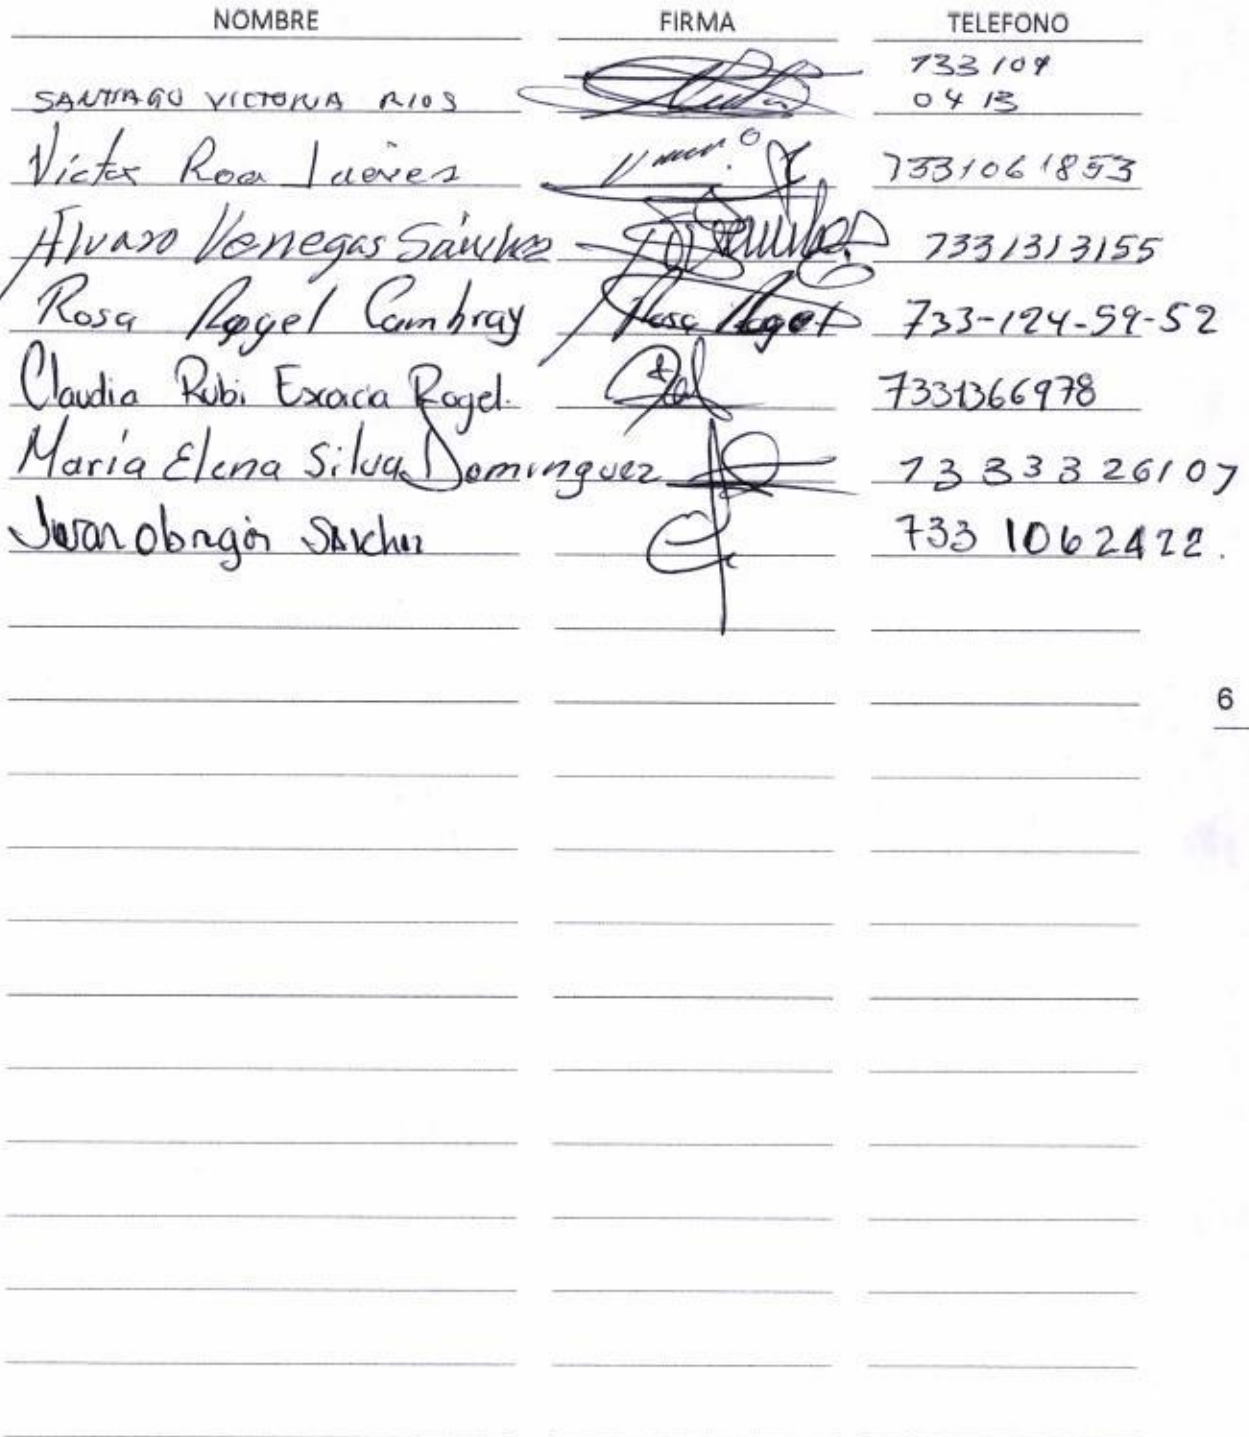 NOMBRE FIRMA TELEFONO
SANTIAGO VICTORIA RIOS 733 104
04 13
Víctor Roa 7331061853
Alvaro Venegas Sánchez 7331313155
Rosa Rogel Cambray Rosa Rogel 733-124-59-52
Claudia Rubi Rogel. 7331366978
María Elena Silva Dominguez 7333326107
Juan obregón Sánchez 733 1062422.
6